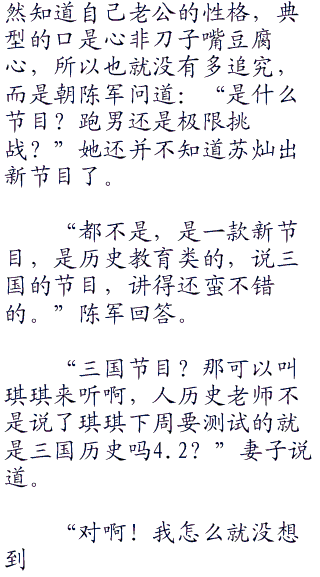 然知道自己老公的性格，典
型的口是心非刀子嘴豆腐
心，所以也就没有多追究，
而是朝陈军问道：“是什么
节目？跑男还是极限挑
战？”她还并不知道苏灿出
新节目了。
“都不是，是一款新节
目，是历史教育类的，说三
国的节目，讲得还蛮不错
的。”陈军回答。
“三国节目？那可以叫
琪琪来听啊，人历史老师不
是说了琪琪下周要测试的就
是三国历史吗4.2？”妻子说
道。
“对啊！我怎么就没想
到